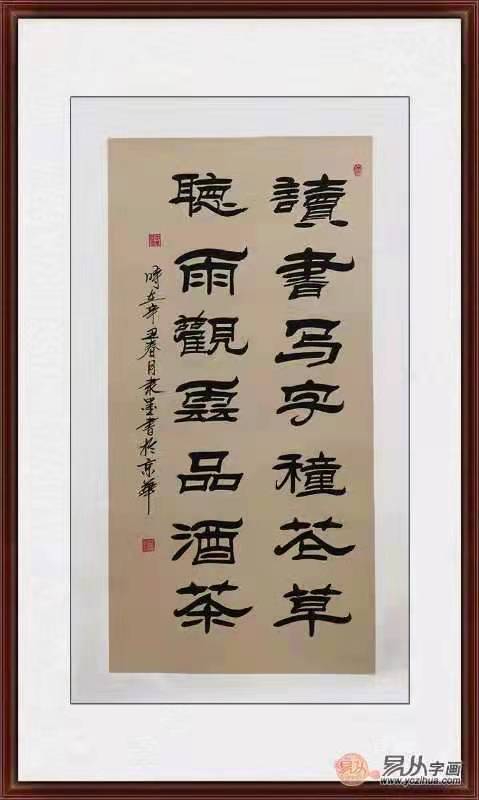 讀書写字種花草
聽雨觀雲品酒茶
時在辛丑春月隶墨書於京華
易从
易从字画
www.yozihua.com